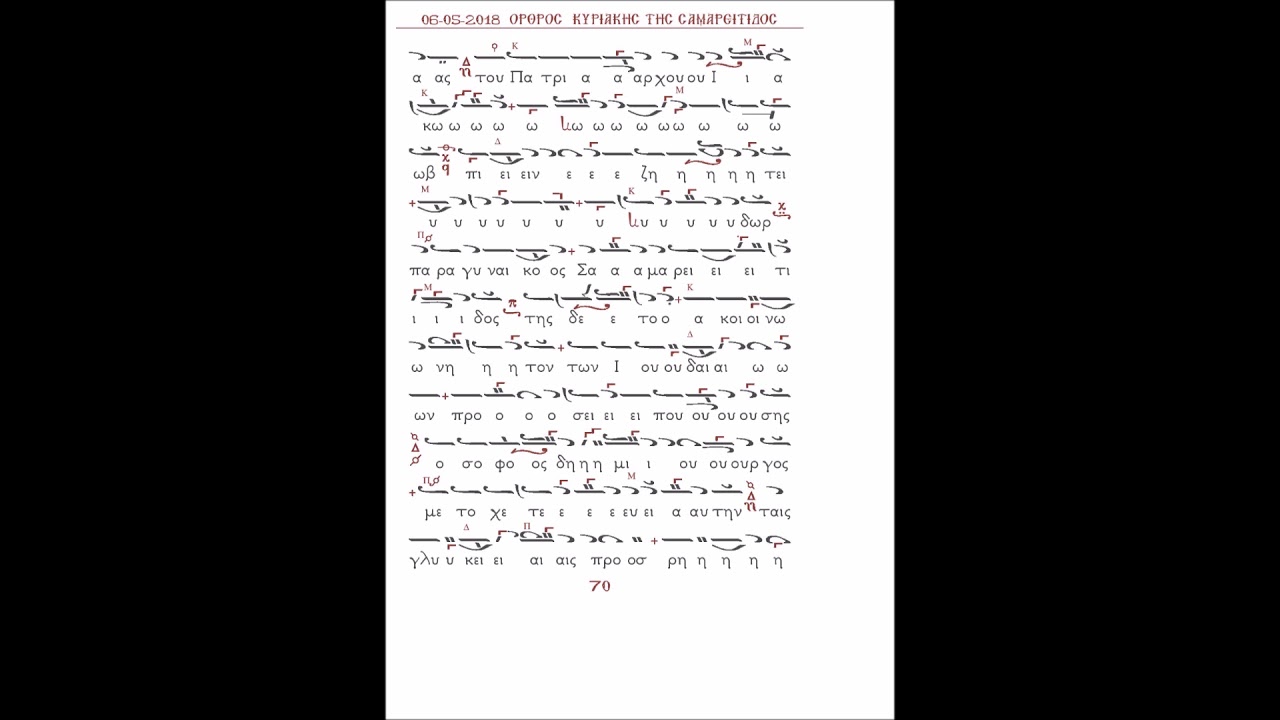 06-05-2018 ΟΡΘΡΟΣ ΚΥΡΙΑΚΗΣ ΤΗΣ ΣΑΜΑΡΕΙΤΙΔΟΣ
α ας του Πα τρι α α αρ χου ου Ι ι α
κω ω ω ω ω ω ω ω ω ω ω ω ω ω
ωβ πι ει ειν ε ε ε ζη η η η η τει
υ υ υ υ υ υ υ υ υ υ υ υ δωρ
πα ρα γυ ναι κο ος Σα α α μα ρει ει ει τι
ι ι ι δος της δε ε το ο α κοι οι νω
ω νη η η τον των Ι ου ου δαι αι ω ω
ων προ ο ο ο σει ει ει που ου ου ου σης
ο σο φο ος δη η η μι ι ου ου ουρ γος
με το χε τε ε ε ε ευ ει α αυ την ταις
γλυ υ κει ει αι αις προ οσ ρη η η η η
70